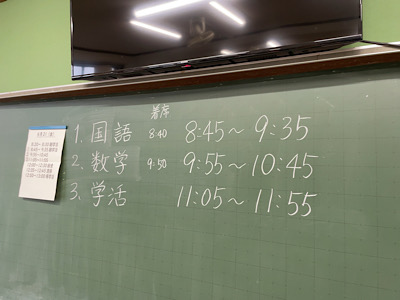 着席
1. 国語 8:40 8:45～9:35
2. 数学 9:50 9:55～10:45
3. 学活 11:05～11:55